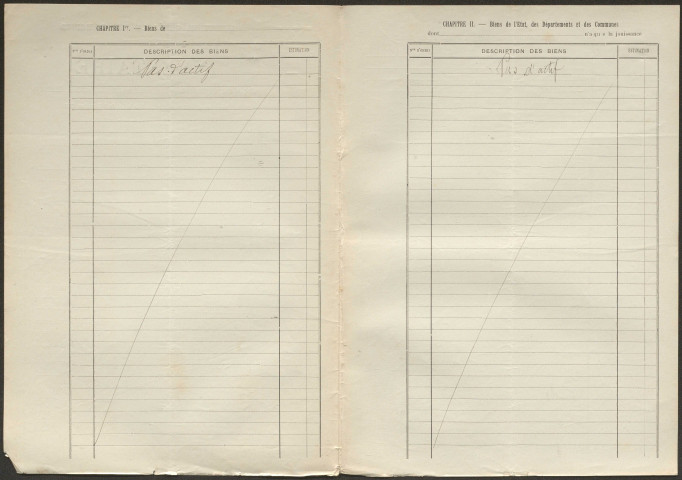 CHAPITRE Ier. — Biens de
DESCRIPTION DES BIENS
ESTIMATION
Pas d'actif
CHAPITRE II. — Biens de l'État, des Départements et des Communes
dont n'a qu'e la jouissance
DESCRIPTION DES BIENS
ESTIMATION
Pas d'actif